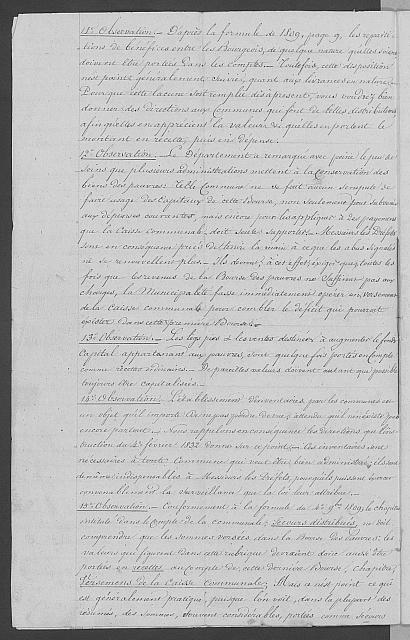 11e Observation. — D'après la formule de 1809, page 9, les réparti-
tions de bénéfices entre les Bourgeois, de quelque nature qu'elles soient
doivent être portées dans les Comptes. — Toutefois, cette disposition
n'est point généralement suivie, quant aux livrances en nature. —
Pour que cette lacune soit remplie dès à présent, vous voudrez bien
donner des directions aux Communes qui font de telles distributions
afin qu'elles en apprécient la valeur & qu'elles en portent le
montant en recette, puis en dépense.
12e Observation. — Le Département a remarqué avec peine le peu de
soins que plusieurs administrations mettent à la conservation des
biens des pauvres. Telle Commune ne se fait aucun scrupule de
faire usage des Capitaux de cette Bourse, non seulement pour subvenir
aux dépenses courantes, mais encore pour les appliquer à des payemens
que la Caisse communale doit seule supporter. — Messieurs les Préfets
sont en conséquence priés de tenir la main à ce que les abus signalés
ne se renouvellent plus. — Ils devront, à cet effet, exiger que toutes les
fois que les revenus de la Bourse des pauvres ne suffiront pas aux
charges, la Municipalité fasse immédiatement opérer un versement
de la Caisse communale pour combler le déficit que pourrait
exister dans cette première Bourse. —
13e Observation. — Les legs pies & les ventes destinés à augmenter le fonds
Capital appartenant aux pauvres, sont quelque fois portés en Compte
comme recettes ordinaires. — De pareilles valeurs doivent autant que possible
toujours être capitalisées. —
14e Observation. — L'établissement d'inventaires, par les communes est
un objet qu'il importe de ne pas perdre de vue, attendu qu'il n'en existe pas
encore partout. — Nous rappelons en conséquence les directions que l'ins-
truction du 4e février 1832 donne sur ce point. — Ces inventaires sont
nécessaires à toute Commune qui veut être bien administrée; ils sont
de même indispensables à Messieurs les Préfets, pour qu'ils puissent exercer
convenablement la surveillance que la loi leur attribue. —
15e Observation. — Conformément à la formule du 4e 9bre 1809, le chapitre
intitulé dans le Compte de la communale, Secours distribués, ne doit
comprendre que les sommes versées dans la Bourse des pauvres: les
valeurs qui figurent dans cette rubrique devraient donc aussi être
portées en recettes au compte de cette dernière Bourse, chapitre,
Versemens de la Caisse Communale. Mais ce n'est point ce qui
est généralement pratiqué, puisque l'on voit, dans la plupart des
résumés, des sommes, souvent considérables, portées comme secours